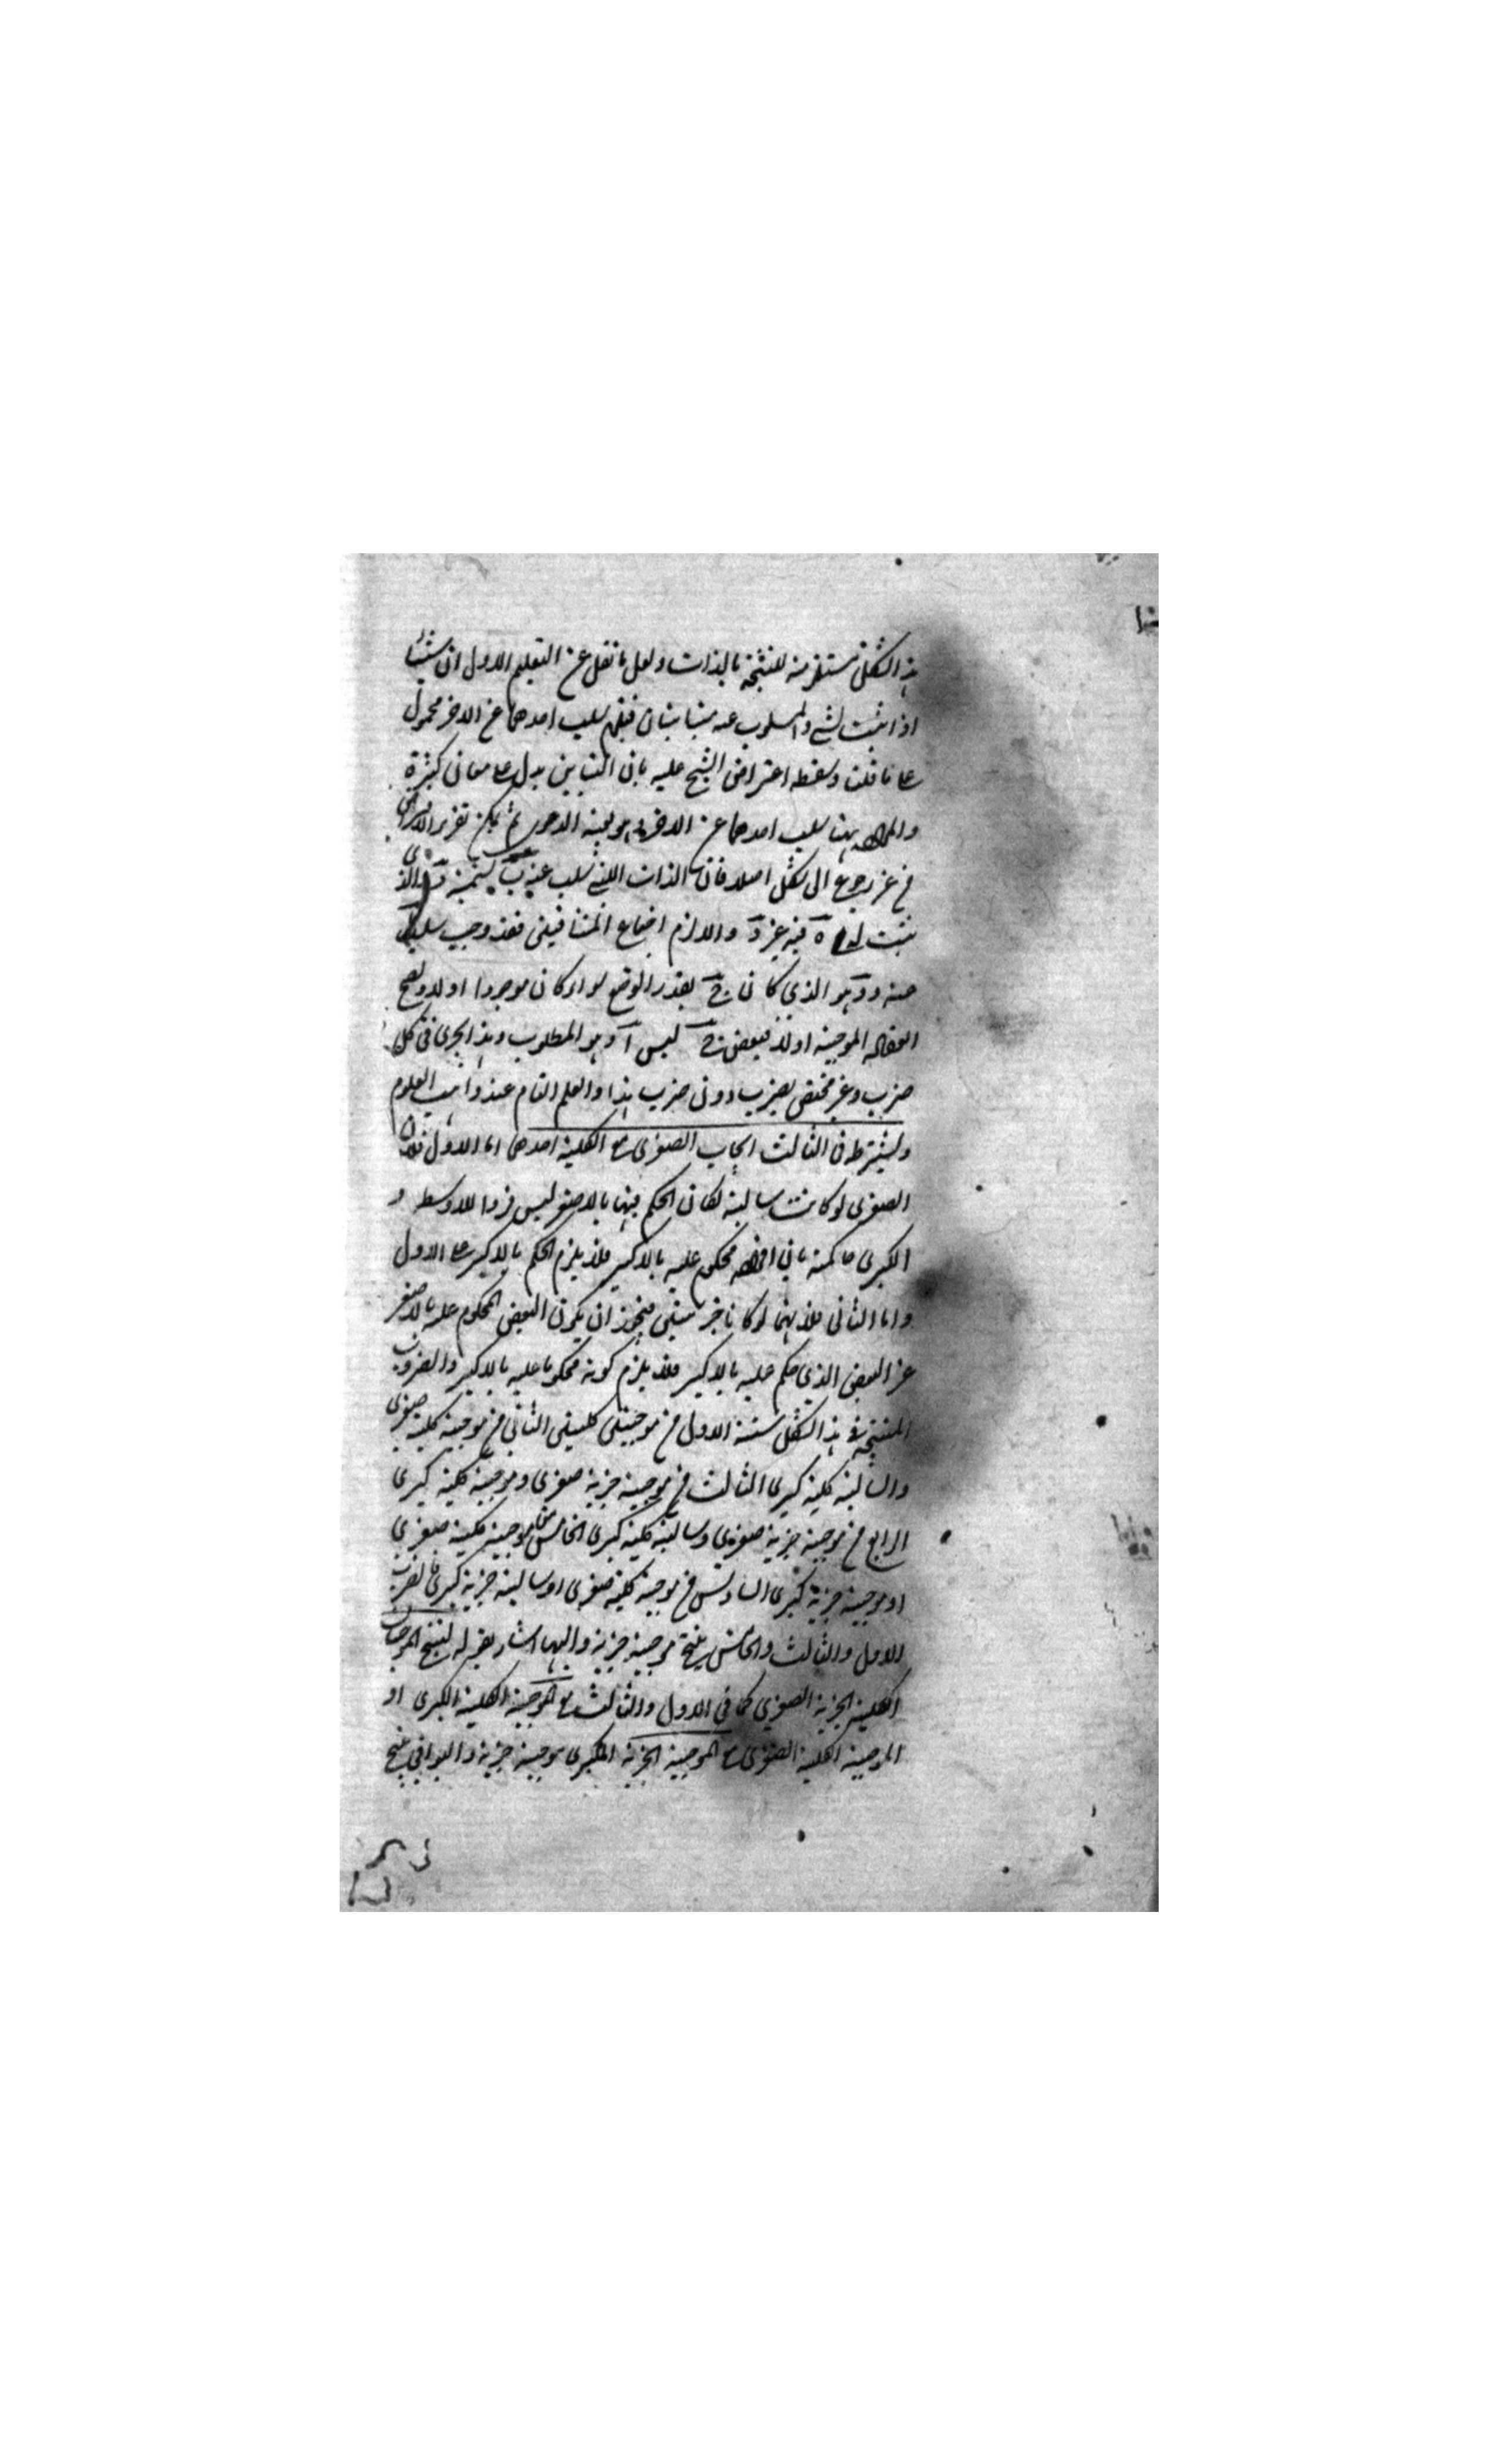 هذا الشكل مستلزمة للنتيجة بالذات ولعل ما نقل عن التعليم الاول ان شيئا
اذا ثبت لشئ والمسلوب عنه متباينان فيلزم سلب احدهما عن الاخر محمول
على ما قلنا وسقط اعتراض الشيخ عليه بان التباين يدل على معان كثيرة
والمراد هنا سلب احدهما عن الاخر وهو بعينه الدعوى ثم يمكن تقرير
من غير رجوع الى شكل اصلا فان الذات التي سلب عنه ب يسميه د والذي
ثبت له فيه غير د والا لزم اجتماع المتنافيين فقد وجب سلب
عنه ود هو الذي كان ج بقدر الوضع سواء كان موجودا اولا ويصح
العقاد الموجبة اولا فبعض ج ليس آ وهو المطلوب وهذا يجري في كل
ضرب وغير مختص بضرب دون ضرب هذا والعلم التام عند واهب العلوم
ويشترط في الثالث ايجاب الصغرى مع الكلية احدهما اما الاول فلان
الصغرى لو كانت سالبة لكان الحكم فيها بالاصغر ليس فردا للاوسط و
الكبرى حاكمة بان افراده محكوم عليه بالاكبر فلا يلزم الحكم بالاكبر على الاول
واما الثاني فلانهما لو كانا جزئيتين فيجوز ان يكون البعض المحكوم عليه بالاصغر
غير البعض الذي حكم عليه بالاكبر فلا يلزم كونه محكوما عليه بالاكبر والضروب
المنتجة في هذا الشكل ستة الاول من موجبتين كليتين الثاني من موجبة كلية صغرى
والسالبة كلية كبرى الثالث من موجبة جزية صغرى وموجبة كلية كبرى
الرابع من موجبة جزية صغرى وسالبة كلية كبرى الخامس من موجبة كلية صغرى
او موجبة جزية كبرى السادس من موجبة كلية صغرى او سالبة جزية كبرى فالضرب
الاول والثالث والخامس ينتج موجبة جزية واليها اشار بقوله لينتج الموجبتان
الكلية الجزية الصغرى كما في الاول والثالث مع الموجبة الكلية الكبرى او
الموجبة الكلية الصغرى مع الموجبة الجزية الكبرى موجبة جزية والبواقي ينتج